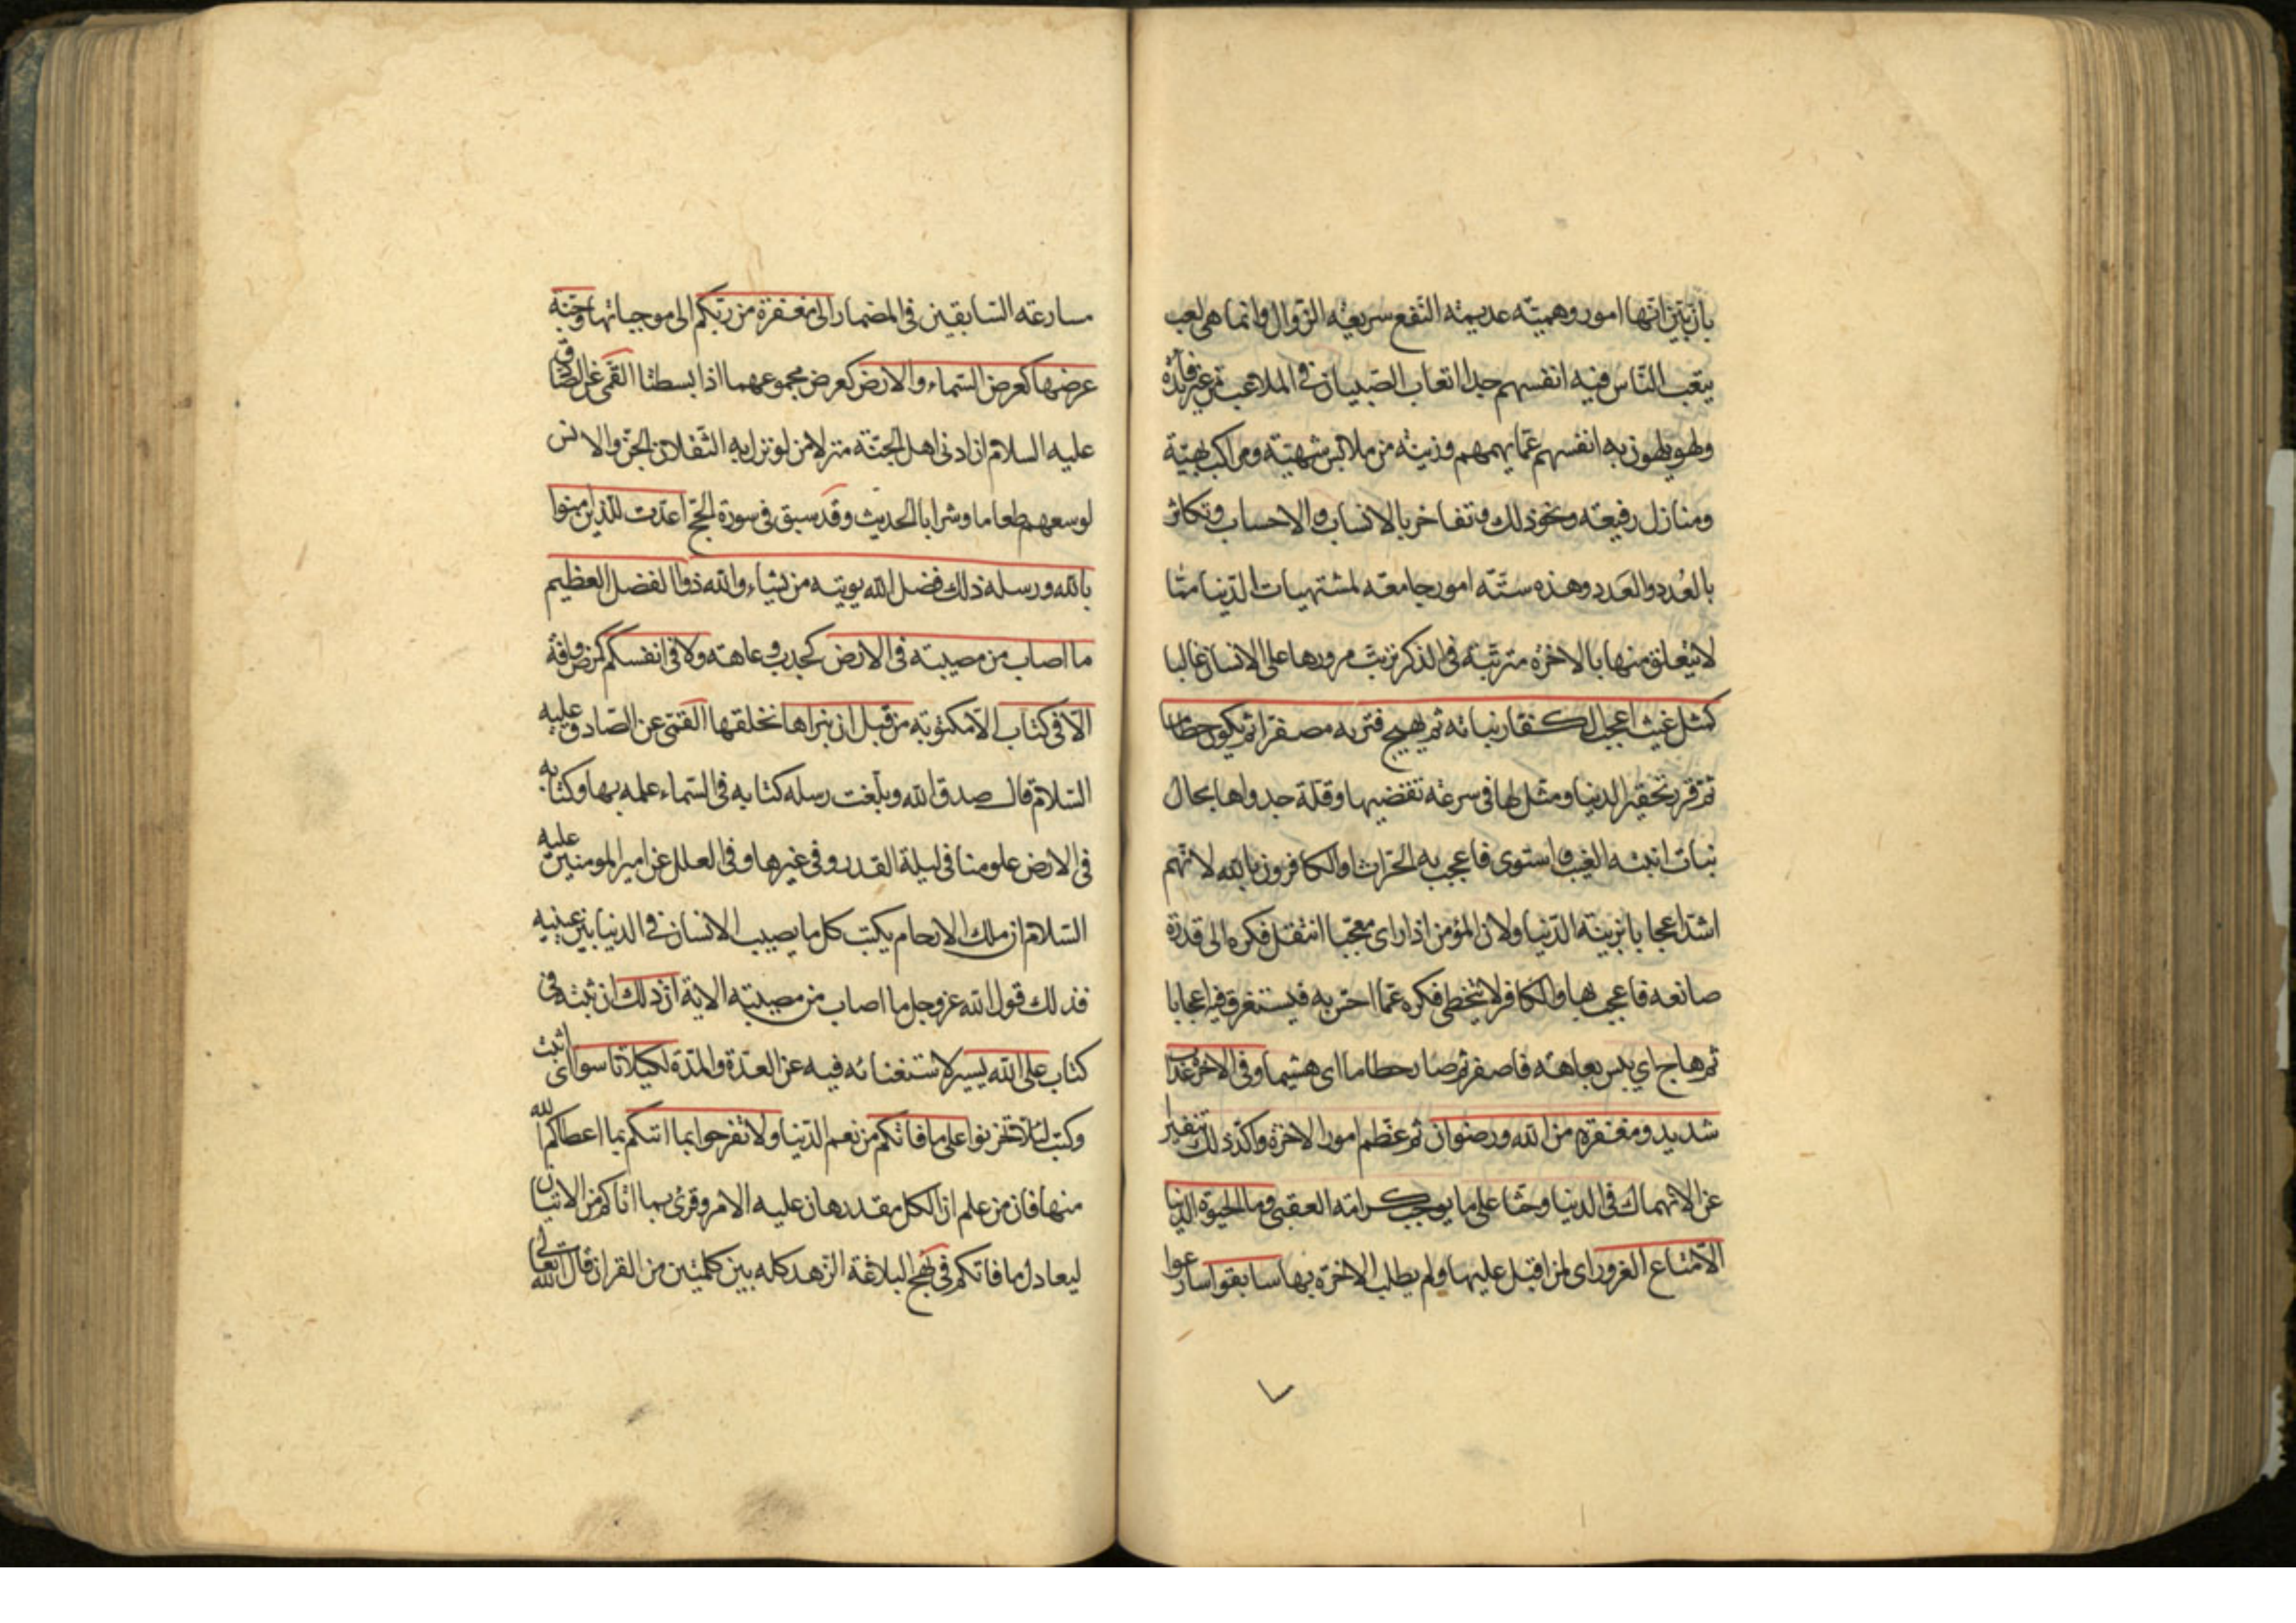 بان بين انها امور وهمية عديمة النفع سريعة الزوال وانما هى لعب
يتعب الناس فيه انفسهم جدا اتعاب الصبيان فى الملاعب من غير فائدة
ولهو يلهون به انفسهم عما يهمهم وزينة من ملابس شهية ومراكب بهية
ومنازل رفيعة ونحو ذلك وتفاخر بالانساب والاحساب وتكاثر
بالعُدد والعَدد وهذه ستة امور جامعة لمشتهيات الدنيا مما
لا يتعلق منها بالاخرة مترتبة فى الذكر ترتب مرورها على الانسان غالبا
كمثل غيث اعجب الكفار نباته ثم يهيج فتريه مصفرا ثم يكون حطاما
ثم قرر تحقير الدنيا ومثل لها فى سرعة تقضيها وقلة جدواها بحال
نبات انبته الغيث واستوى فاعجب به الحراث او الكافرون بالله لانهم
اشد اعجابا بزينة الدنيا ولان المؤمن اذا راى معجبا انتقل فكره الى قدرة
صانعه فاعجب بها والكافر لا يتخطى فكره عما احس به فيستغرق فيه اعجابا
ثم هاج اى يبس بعاهة فاصفر ثم صار حطاما اى هشيما وفى الاخرة عذاب
شديد ومغفرة من الله ورضوان ثم عظم امور الاخرة واكد ذلك تنفيرا
عن الانهماك فى الدنيا وحثا على ما يوجب كرامة العقبى وما الحيوة الدنيا
الا متاع الغرور اى لمن اقبل عليها ولم يطلب الاخرة بها سابقوا سارعوا
مسارعة السابقين فى المضمار الى مغفرة من ربكم الى موجباتها وجنة
عرضها كعرض السماء والارض كعرض مجموعهما اذا بسطتا القمى عن الصادق
عليه السلام ان ادنى اهل الجنة منزلا من لو نزل به الثقلان الجن والانس
لوسعهم طعاما وشرابا الحديث وقد سبق فى سورة الحج اعدت للذين امنوا
بالله ورسله ذلك فضل الله يوتيه من يشاء والله ذو الفضل العظيم
ما اصاب من مصيبة فى الارض كجدب وعاهة ولا فى انفسكم كمرض وافة
الا فى كتاب الا مكتوبة من قبل ان نبراها نخلقها القمى عن الصادق عليه
السلام قال صدق الله وبلغت رسله كتابه فى السماء علمه بها وكتابه
فى الارض علومنا فى ليلة القدر وفى غيرها وفى العلل عن امير المومنين عليه
السلام ان ملك الارحام يكتب كل ما يصيب الانسان فى الدنيا بين عينيه
فذلك قول الله عز وجل ما اصاب من مصيبة الاية ان ذلك ان ثبته فى
كتاب على الله يسير لاستغنائه فيه عن العدة والمدة لكيلا تاسوا اى اثبت
وكتب لئلا تحزنوا على ما فاتكم من نعم الدنيا ولا تفرحوا بما اتيكم بما اعطاكم الله
منها فان من علم ان الكل مقدر هان عليه الامر وقرئ بما اتاكم من الاتيان
ليعادل ما فاتكم فى نهج البلاغة الزهد كله بين كلمتين من القران قال الله تعالى